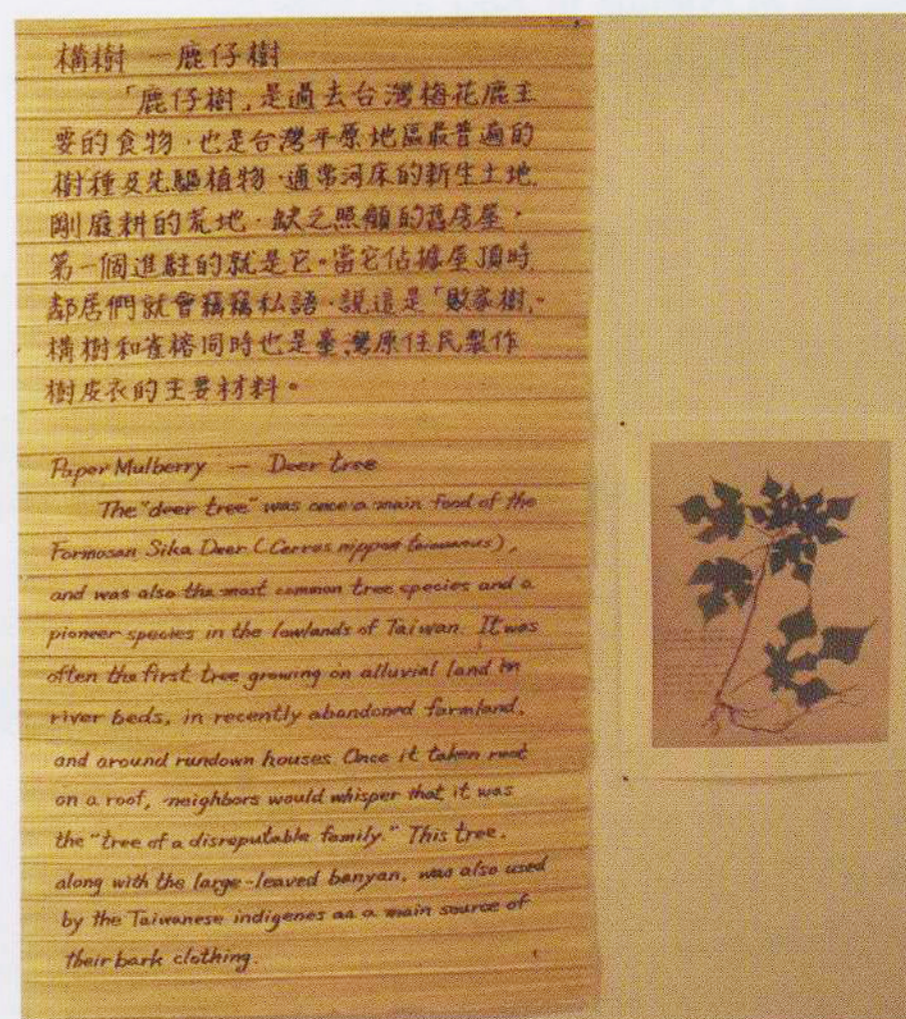 構樹 一鹿仔樹
「鹿仔樹」是過去台灣梅花鹿主
要的食物，也是台灣平原地區最普遍的
樹種及先驅植物，通常河床的新生土地，
剛廢耕的荒地，缺乏照顧的舊房屋，
第一個進駐的就是它。當它佔據屋頂時，
鄰居們就會竊竊私語，說這是「敗家樹」。
構樹和雀榕同時也是臺灣原住民製作
樹皮衣的主要材料。
Paper Mulberry — Deer tree
The "deer tree" was once a main food of the
Formosan Sika Deer (Cervus nippon taiouanus),
and was also the most common tree species and a
pioneer species in the lowlands of Taiwan. It was
often the first tree growing on alluvial land in
river beds, in recently abandoned farmland,
and around rundown houses. Once it taken root
on a roof, neighbors would whisper that it was
the "tree of a disreputable family." This tree,
along with the large-leaved banyan, was also used
by the Taiwanese indigenes as a main source of
their bark clothing.